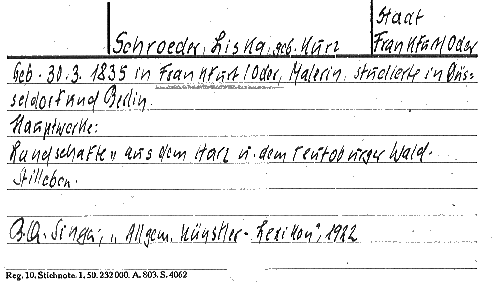 Stadt
Schroeder, Liska, geb. Kurz Frankfurt/Oder
Geb. 30.3. 1835 in Frankfurt/Oder, Malerin, studierte in Düs-
seldorf und Berlin.
Hauptwerke:
Landschaften aus dem Harz u. dem Teutoburger Wald.
Stilleben.
B.Q. Singer, "Allgem. Künstler-Lexikon", 1922
Reg. 10. Stichnote. 1, 50. 232 000. A. 803. S. 4062